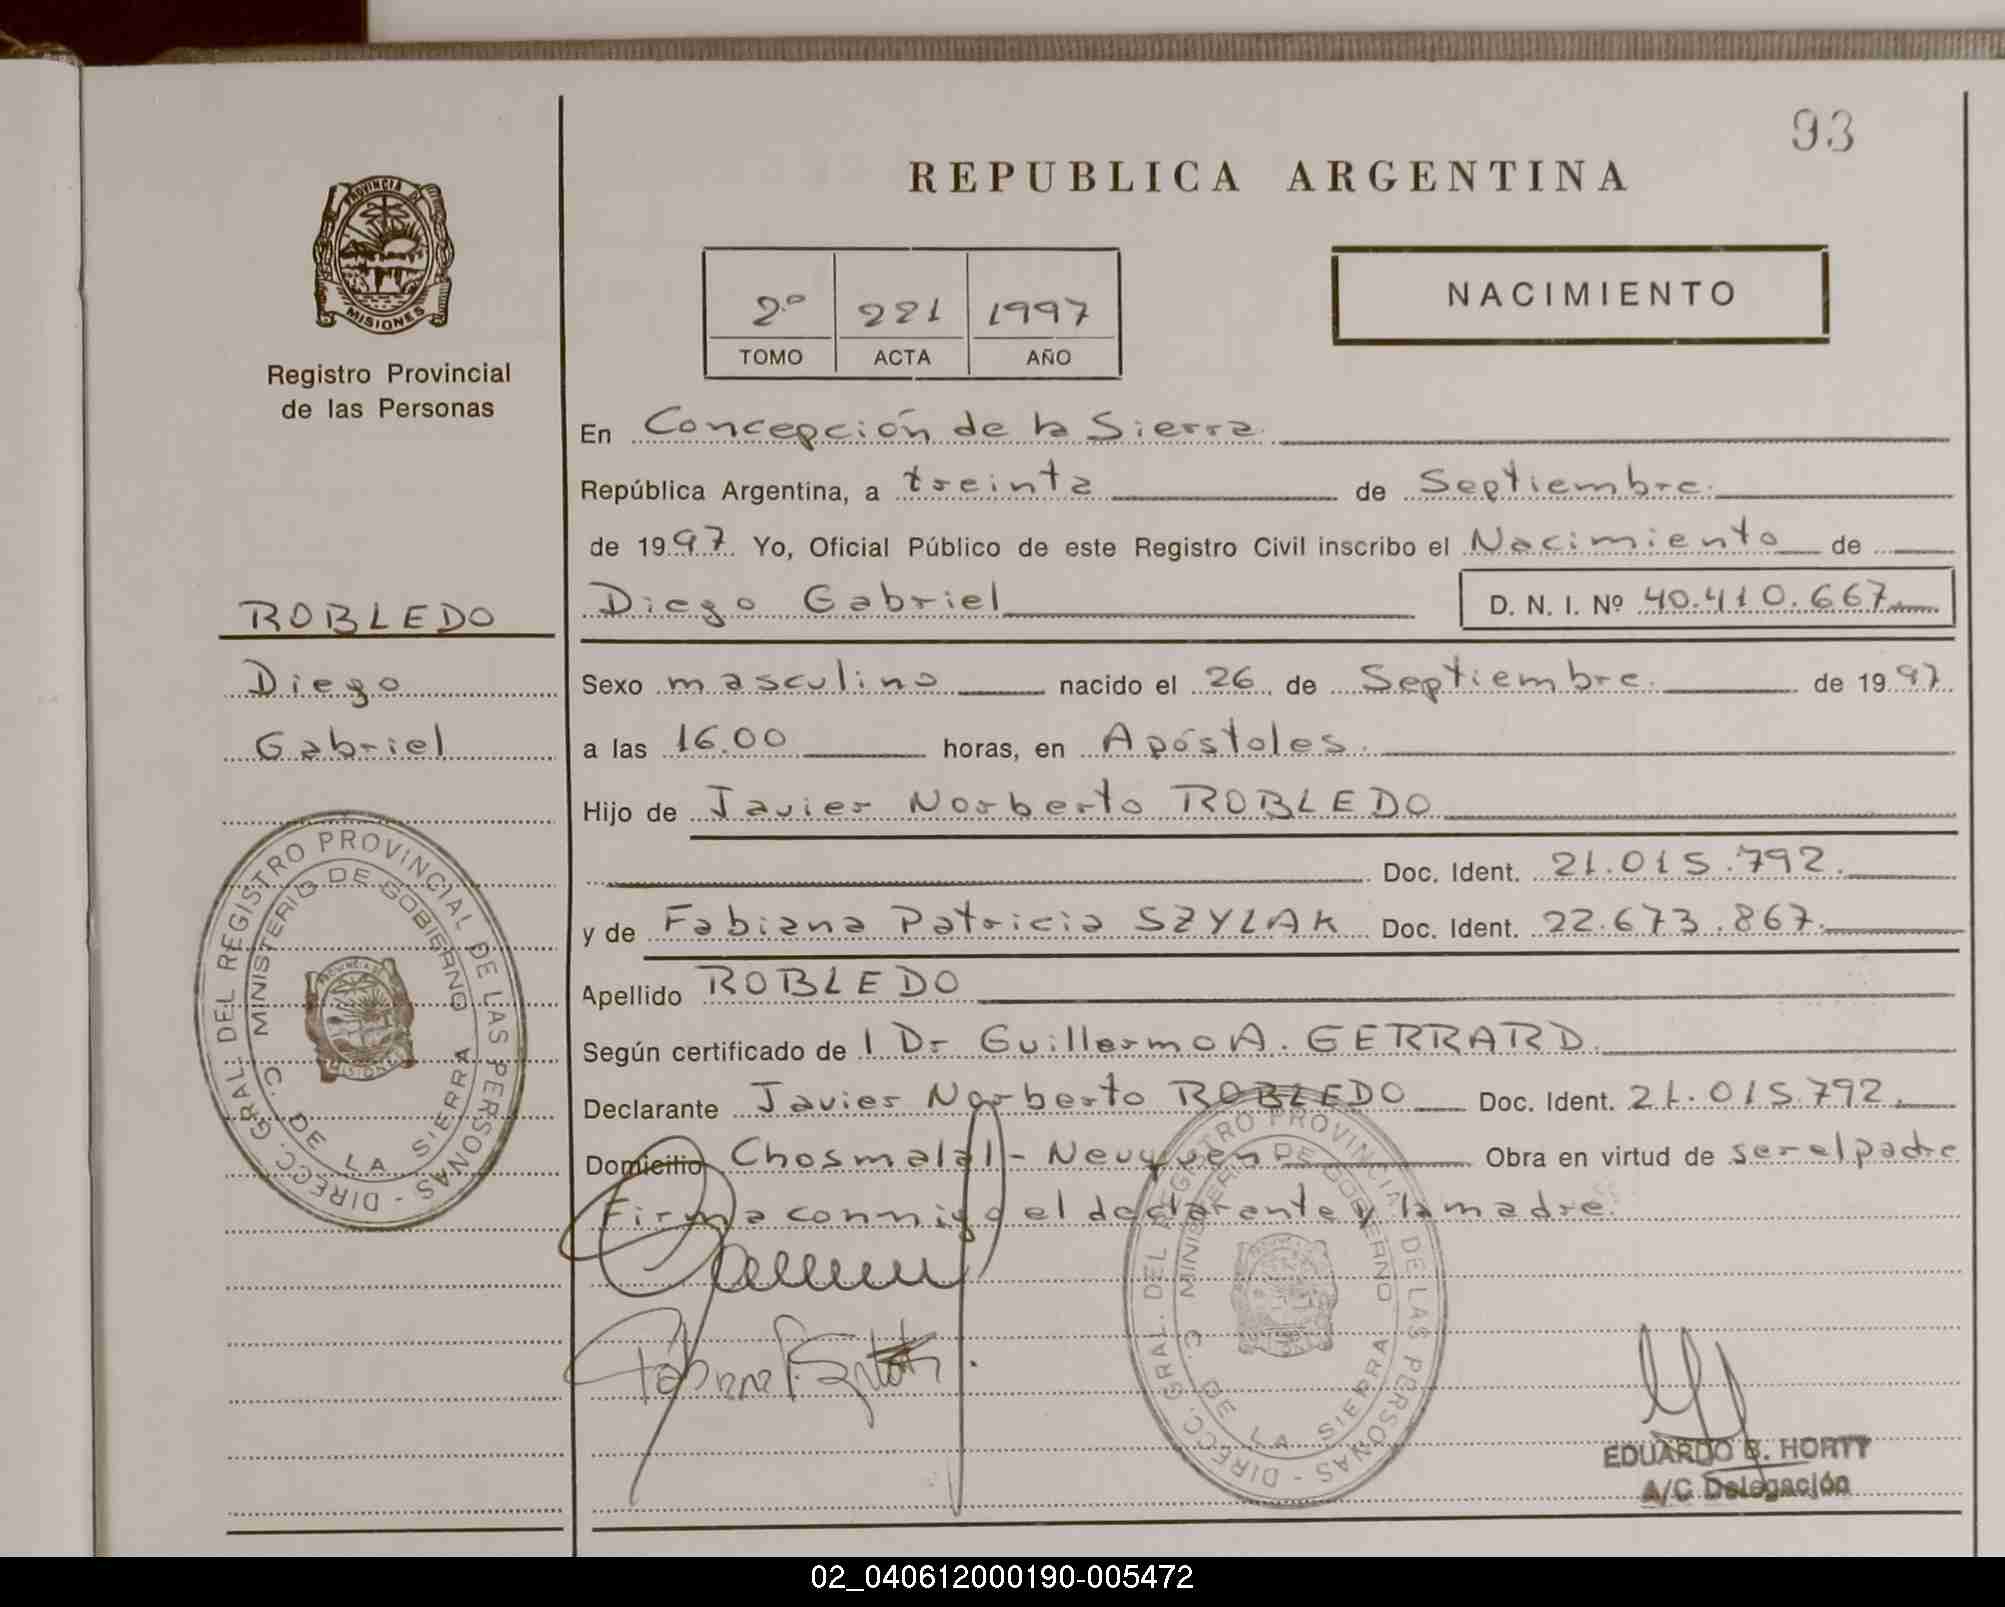 93
REPUBLICA ARGENTINA
PROVINCIA DE
MISIONES
Registro Provincial
de las Personas
2º 221 1997
TOMO ACTA AÑO
NACIMIENTO
En Concepción de la Sierra.
República Argentina, a treinta de Septiembre.
de 1997. Yo, Oficial Público de este Registro Civil inscribo el Nacimiento de
Diego Gabriel D. N. I. Nº 40.410.667
ROBLEDO
Diego
Gabriel
Sexo masculino nacido el 26 de Septiembre. de 1997
a las 16.00 horas, en Apóstoles.
Hijo de Javier Norberto ROBLEDO
Doc. Ident. 21.015.792.
y de Fabiana Patricia SZYLAK Doc. Ident. 22.673.867.
Apellido ROBLEDO
Según certificado de l Dr Guillermo A. GERRARD.
Declarante Javier Norberto ROBLEDO Doc. Ident. 21.015.792.
Domicilio Chosmalal - Neuquén Obra en virtud de ser el padre
Firma conmigo el declarante y la madre.
DIRECC. GRAL. DEL REGISTRO PROVINCIAL DE LAS PERSONAS -
MINISTERIO DE GOBIERNO
C. DE LA SIERRA
PROVINCIA DE
MISIONES
DIRECC. GRAL. DEL REGISTRO PROVINCIAL DE LAS PERSONAS -
MINISTERIO DE GOBIERNO
C. DE LA SIERRA
EDUARDO B. HORTT
A/C Delegación
02_040612000190-005472